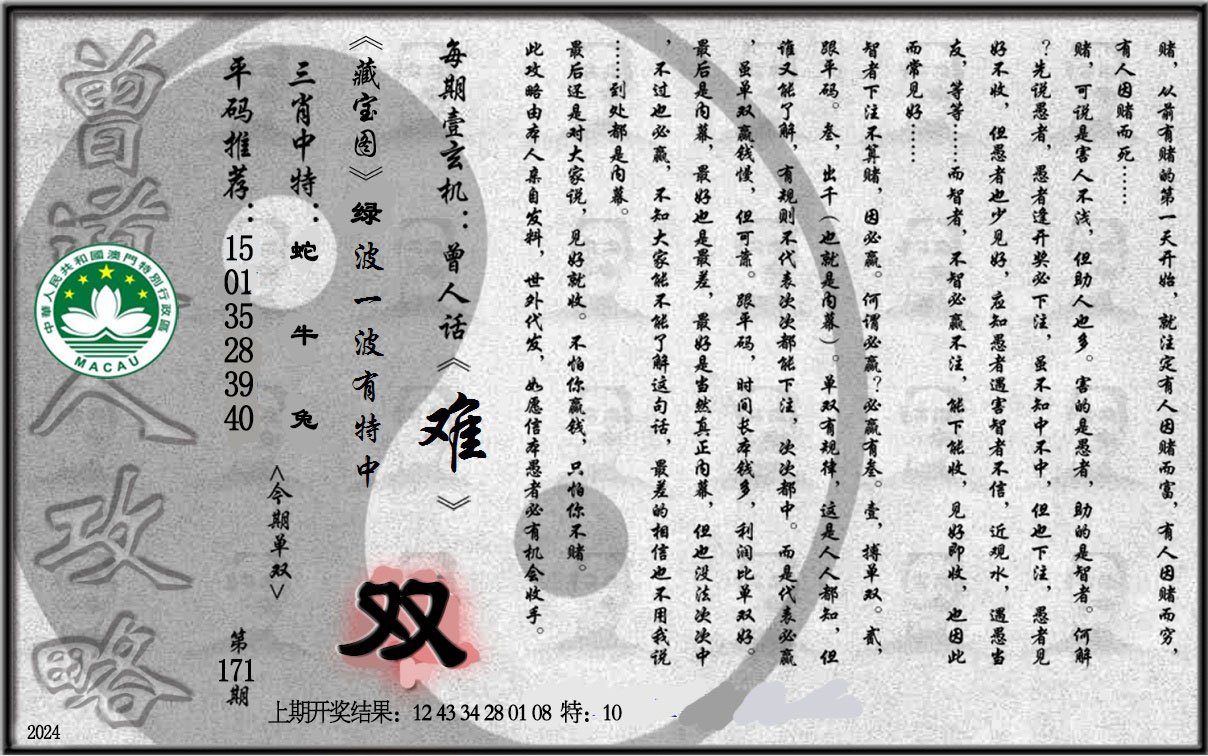 赌，从前有赌的第一天开始，就注定有人因赌而富，有人因赌而穷，
有人因赌而死……
赌，可说是害人不浅，但助人也多。害的是愚者，助的是智者。何解
？先说愚者，愚者逢开奖必下注，虽不知中不中，但也下注，愚者见
好不收，但愚者也少见好，应知愚者遇害智者不信，近观水，遇愚当
友，等等……而智者，不智必赢不注，能下能收，见好即收，也因此
而常见好……
智者下注不算赌，因必赢。何谓必赢？必赢有叁。壹，搏单双。贰，
跟平码。叁，出千（也就是内幕）。单双有规律，这是人人都知，但
谁又能了解，有规则不代表次次都能下注，次次都中。而是代表必赢
，虽单双赢钱慢，但可靠。跟平码，时间长本钱多，利润比单双好。
最后是内幕，最好也是最差，最好是当然真正内幕，但也没法次次中
，不过也必赢，不知大家能不能了解这句话，最差的相信也不用我说
……到处都是内幕。
最后还是对大家说，见好就收。不怕你赢钱，只怕你不赌。
此攻略由本人亲自发料，世外代发，如愿信本愚者必有机会收手。
每期壹玄机：曾人话《难》
《藏宝图》绿波一波有特中
双
三肖中特：蛇 牛 兔
<今期单双>
平码推荐：15 01 35 28 39 40
第171期
曾道人攻略
中華人民共和國澳門特別行政區
MACAU
上期开奖结果：12 43 34 28 01 08 特：10
2024